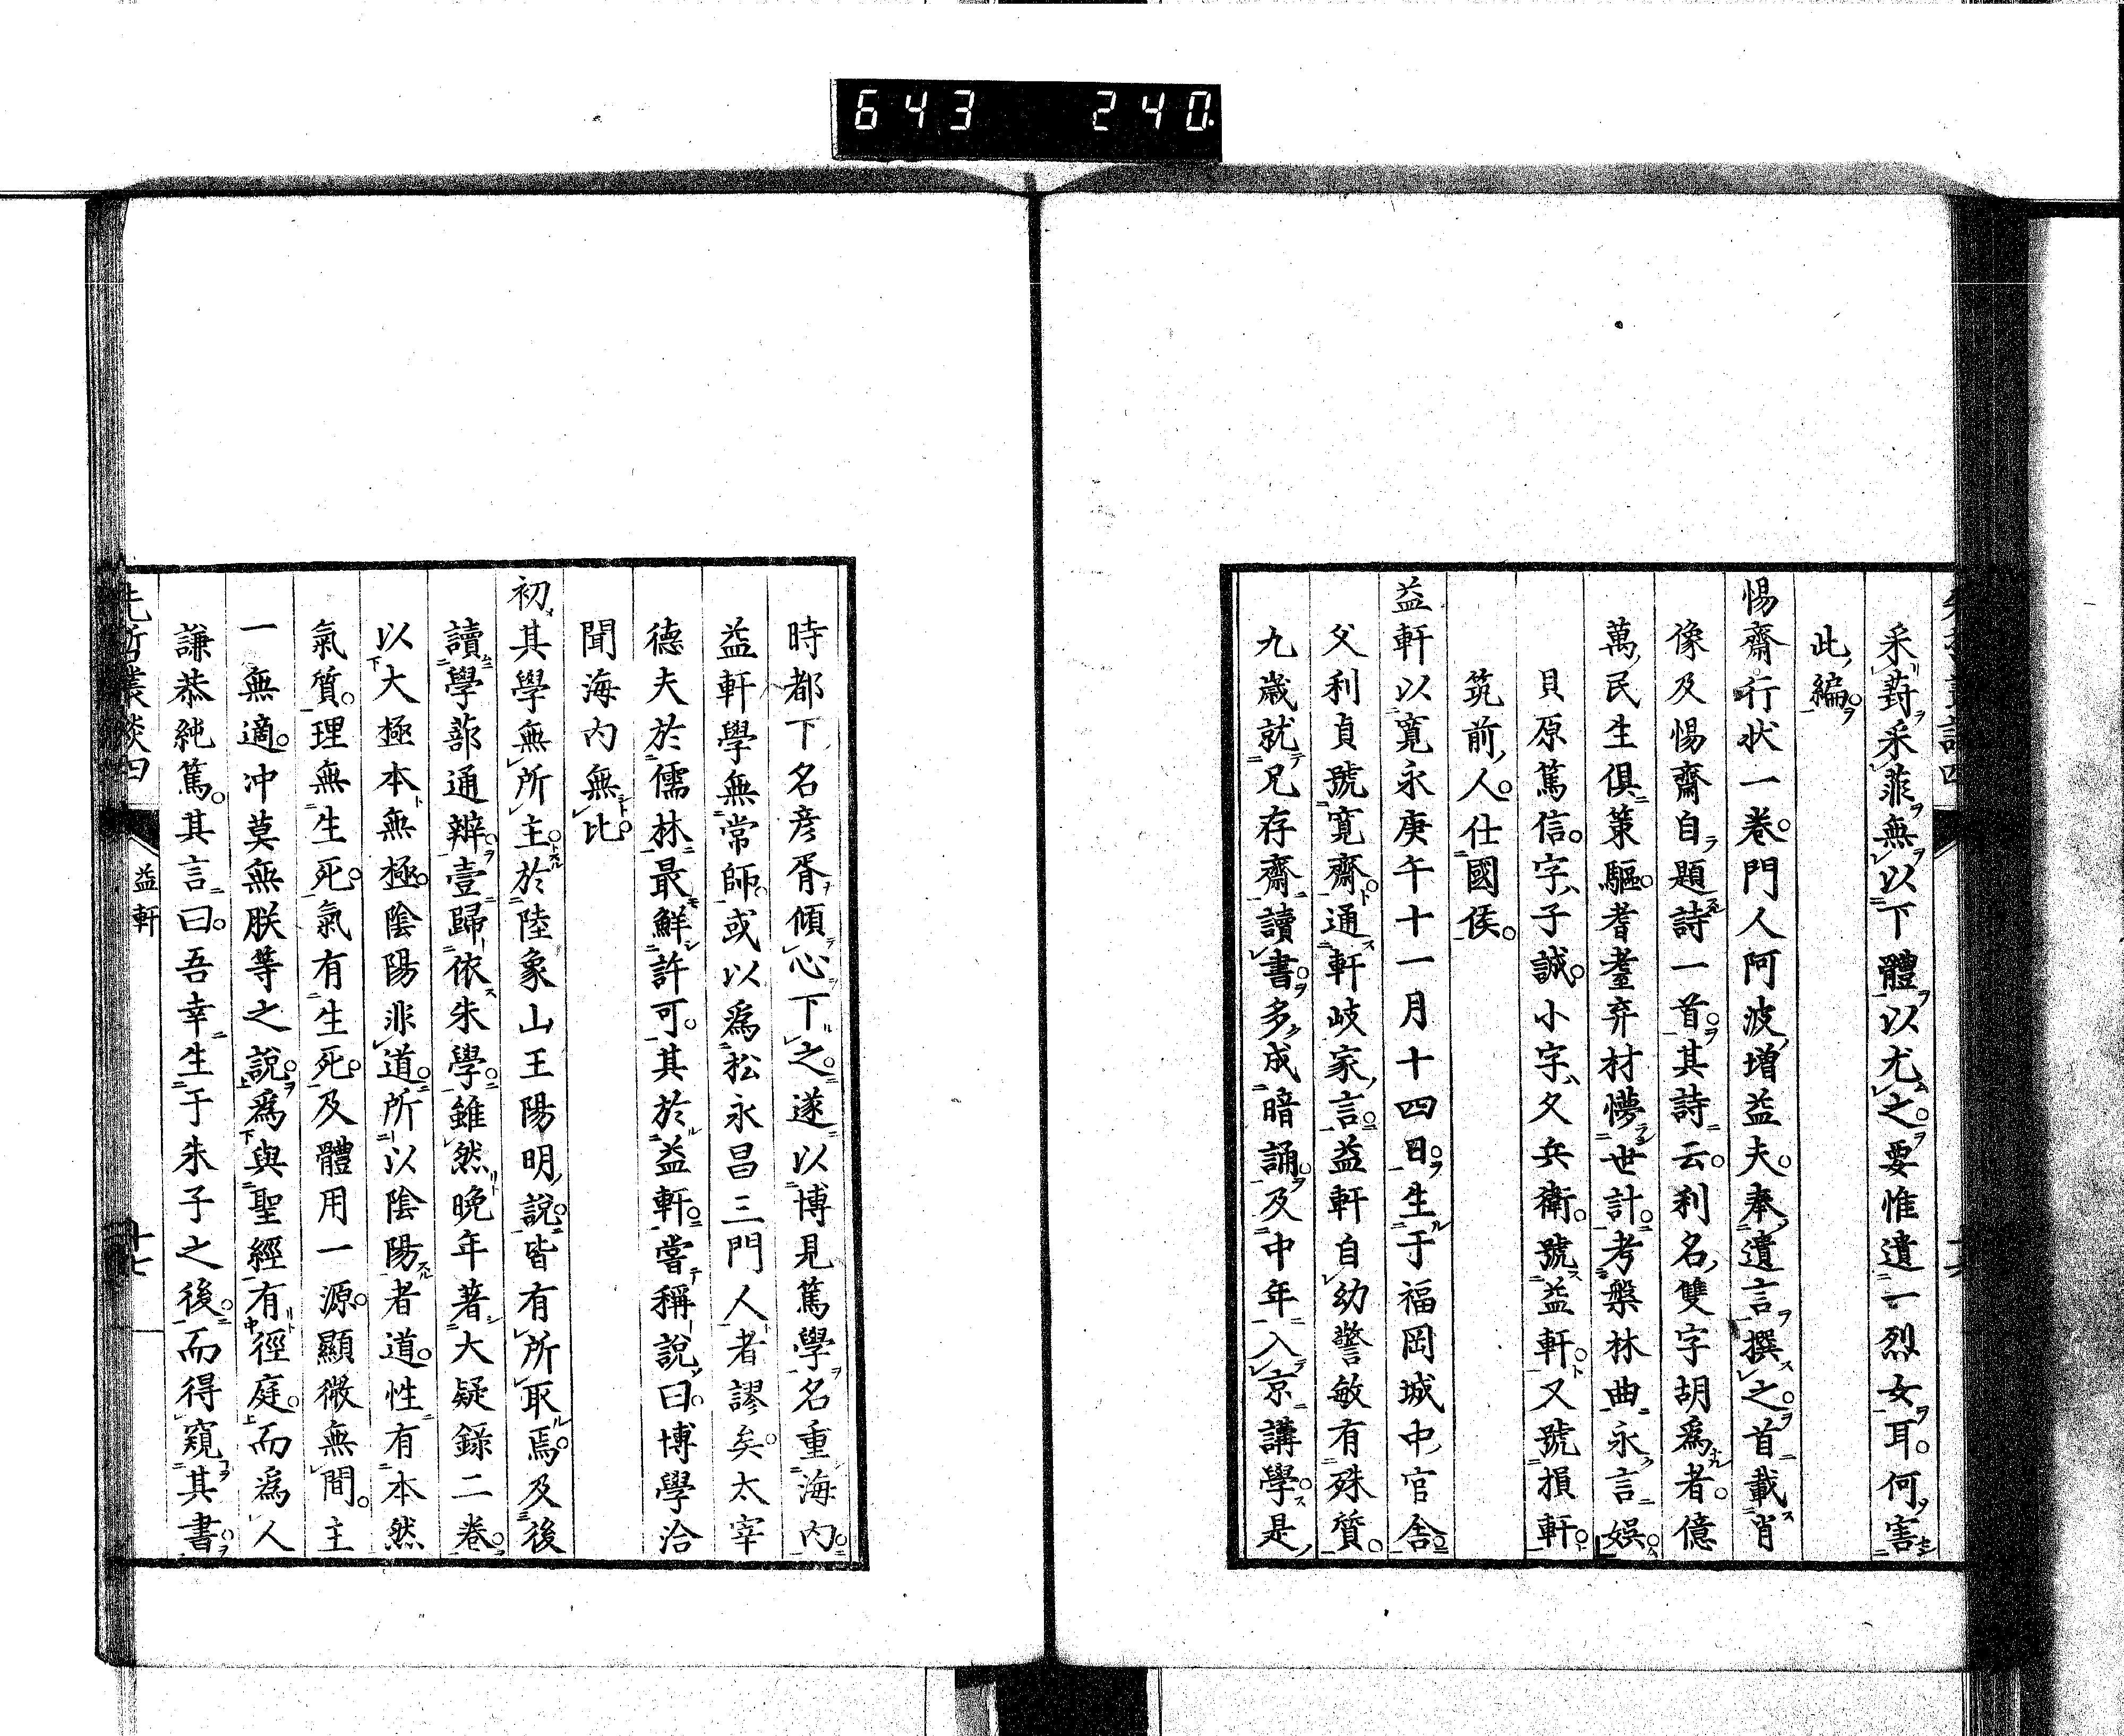 643 240
采葑采菲無以下體以尤之要惟遺一烈女耳何害
此編
惕齋行狀一卷門人阿波增益夫奉遺言撰之首載肖
像及惕齋自題詩一首其詩云利名雙字胡爲者億
萬民生俱策驅耆耋弃材懜世計考槃林曲永言娛
貝原篤信字子誠小字久兵衛號益軒又號損軒
筑前人仕國侯
益軒以寬永庚午十一月十四日生于福岡城中官舍
父利貞號寬齋通軒岐家言益軒自幼警敏有殊質
九歲就兄存齋讀書多成暗誦及中年入京講學是
時都下名彥胥傾心下之遂以博見篤學名重海內
益軒學無常師或以爲松永昌三門人者謬矣太宰
德夫於儒林最鮮許可其於益軒嘗稱說曰博學洽
聞海內無比
初其學無所主於陸象山王陽明說皆有所取焉及後
讀學蔀通辨壹歸依朱學雖然晚年著大疑錄二卷
以大極本無極陰陽非道所以陰陽者道性有本然
氣質理無生死氣有生死及體用一源顯微無間主
一無適冲莫無朕等之說爲與聖經有徑庭而爲人
謙恭純篤其言曰吾幸生于朱子之後而得窺其書
先哲叢談四
益軒
十七